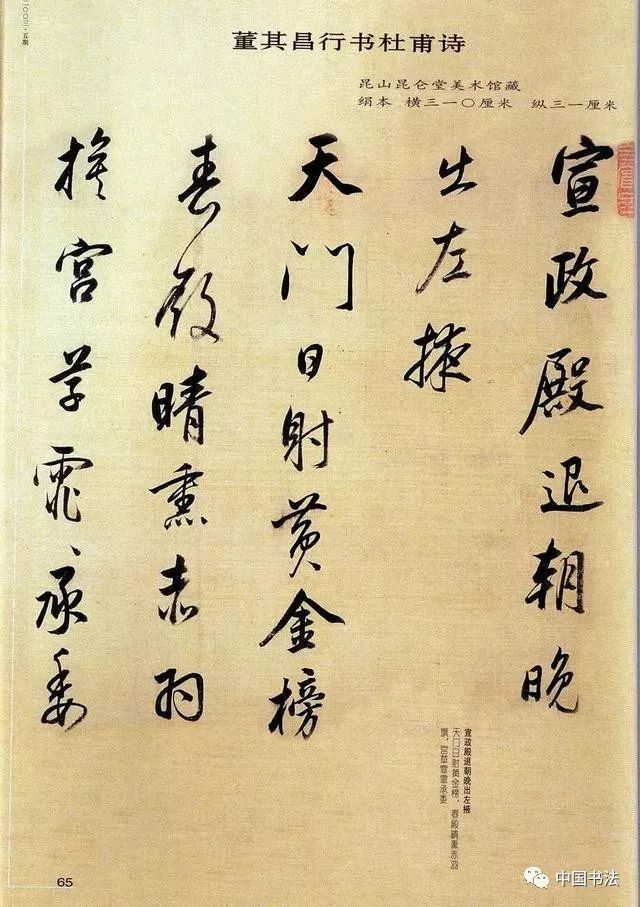 二〇〇三·五期
董其昌行书杜甫诗
昆山昆仑堂美术馆藏
绢本 横三一〇厘米 纵三一厘米
宣政殿退朝晚
出左掖
天门日射黄金榜
春殿晴熏赤羽
旗宫草霏〻承委
宣政殿退朝晚出左掖
天门日射黄金榜，春殿晴熏赤羽
旗，宫草霏霏承委
65
中国书法